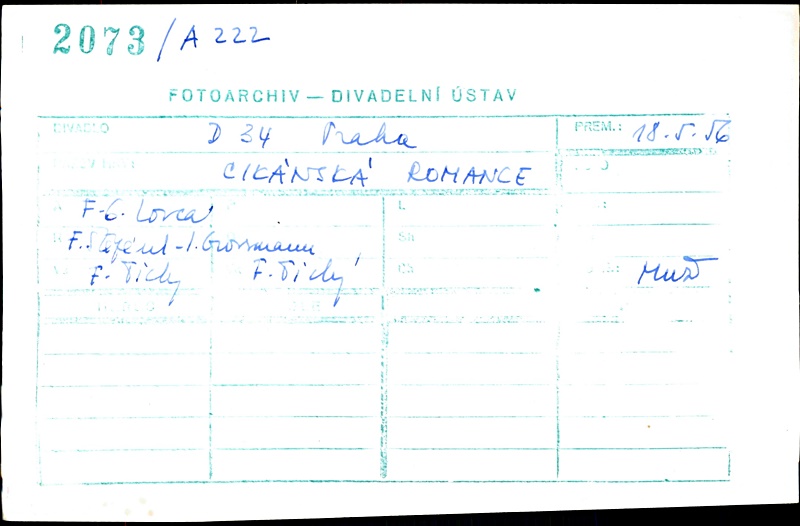 2073 / A 222
FOTOARCHIV — DIVADELNÍ ÚSTAV
DIVADLO D 34 Praha PREM.: 18.5.56
CIKÁNSKÁ ROMANCE
F. G. Lorca
F. Štěpánek - J. Grossmann
F. Tichý F. Tichý